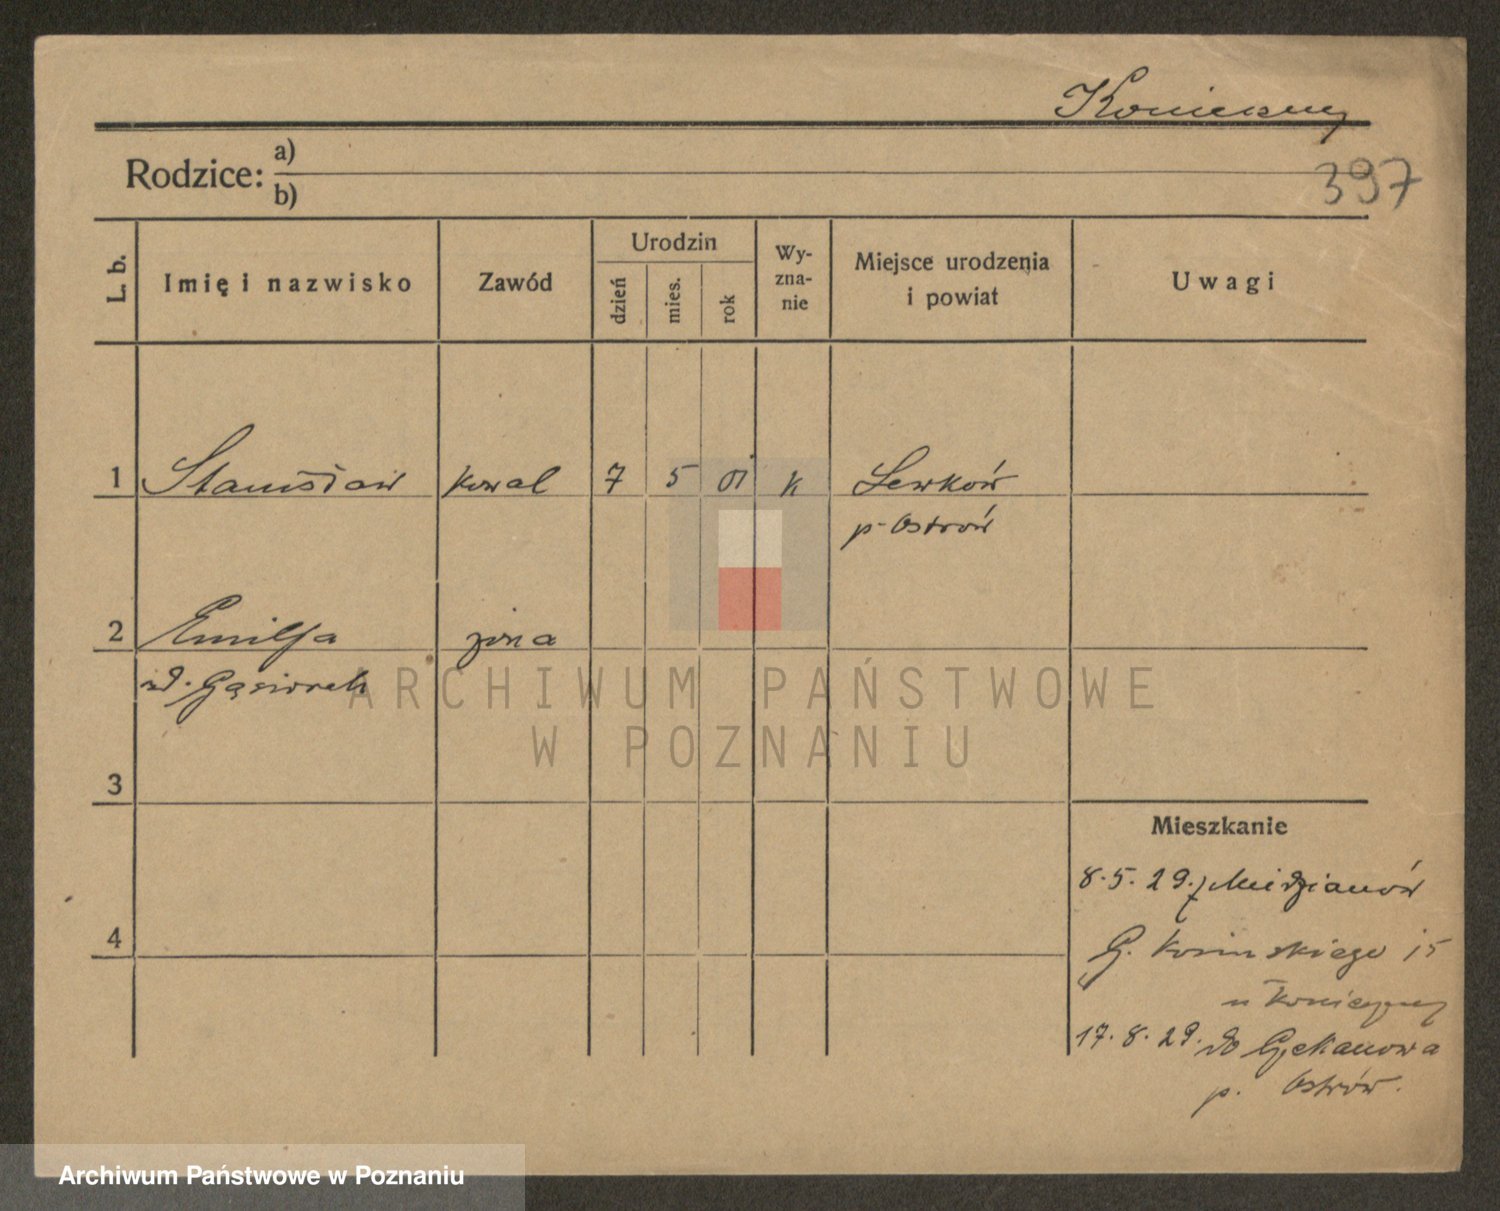 Konieczny
397
Rodzice: a)
b)
L. b.
Imię i nazwisko
Zawód
Urodzin
dzień
mies.
rok
Wy-
zna-
nie
Miejsce urodzenia
i powiat
Uwagi
1 Stanisław kowal 7 5 01 k Lewków
p. Ostrów
2 Emilja żona
z d. Gąsiorek
3
4
Mieszkanie
8.5.29. z Miedzianów
G. Kosińskiego 15
u Konieczny
17.8.29. do Czekanowa
p. Ostrów.
ARCHIWUM PAŃSTWOWE
W POZNANIU
Archiwum Państwowe w Poznaniu